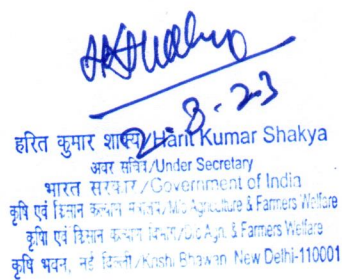 2-8-23
हरित कुमार शाक्य/Harit Kumar Shakya
अवर सचिव/Under Secretary
भारत सरकार/Government of India
कृषि एवं किसान कल्याण मंत्रालय/M/o Agriculture & Farmers Welfare
कृषि एवं किसान कल्याण विभाग/D/o Agri. & Farmers Welfare
कृषि भवन, नई दिल्ली/Krishi Bhawan, New Delhi-110001